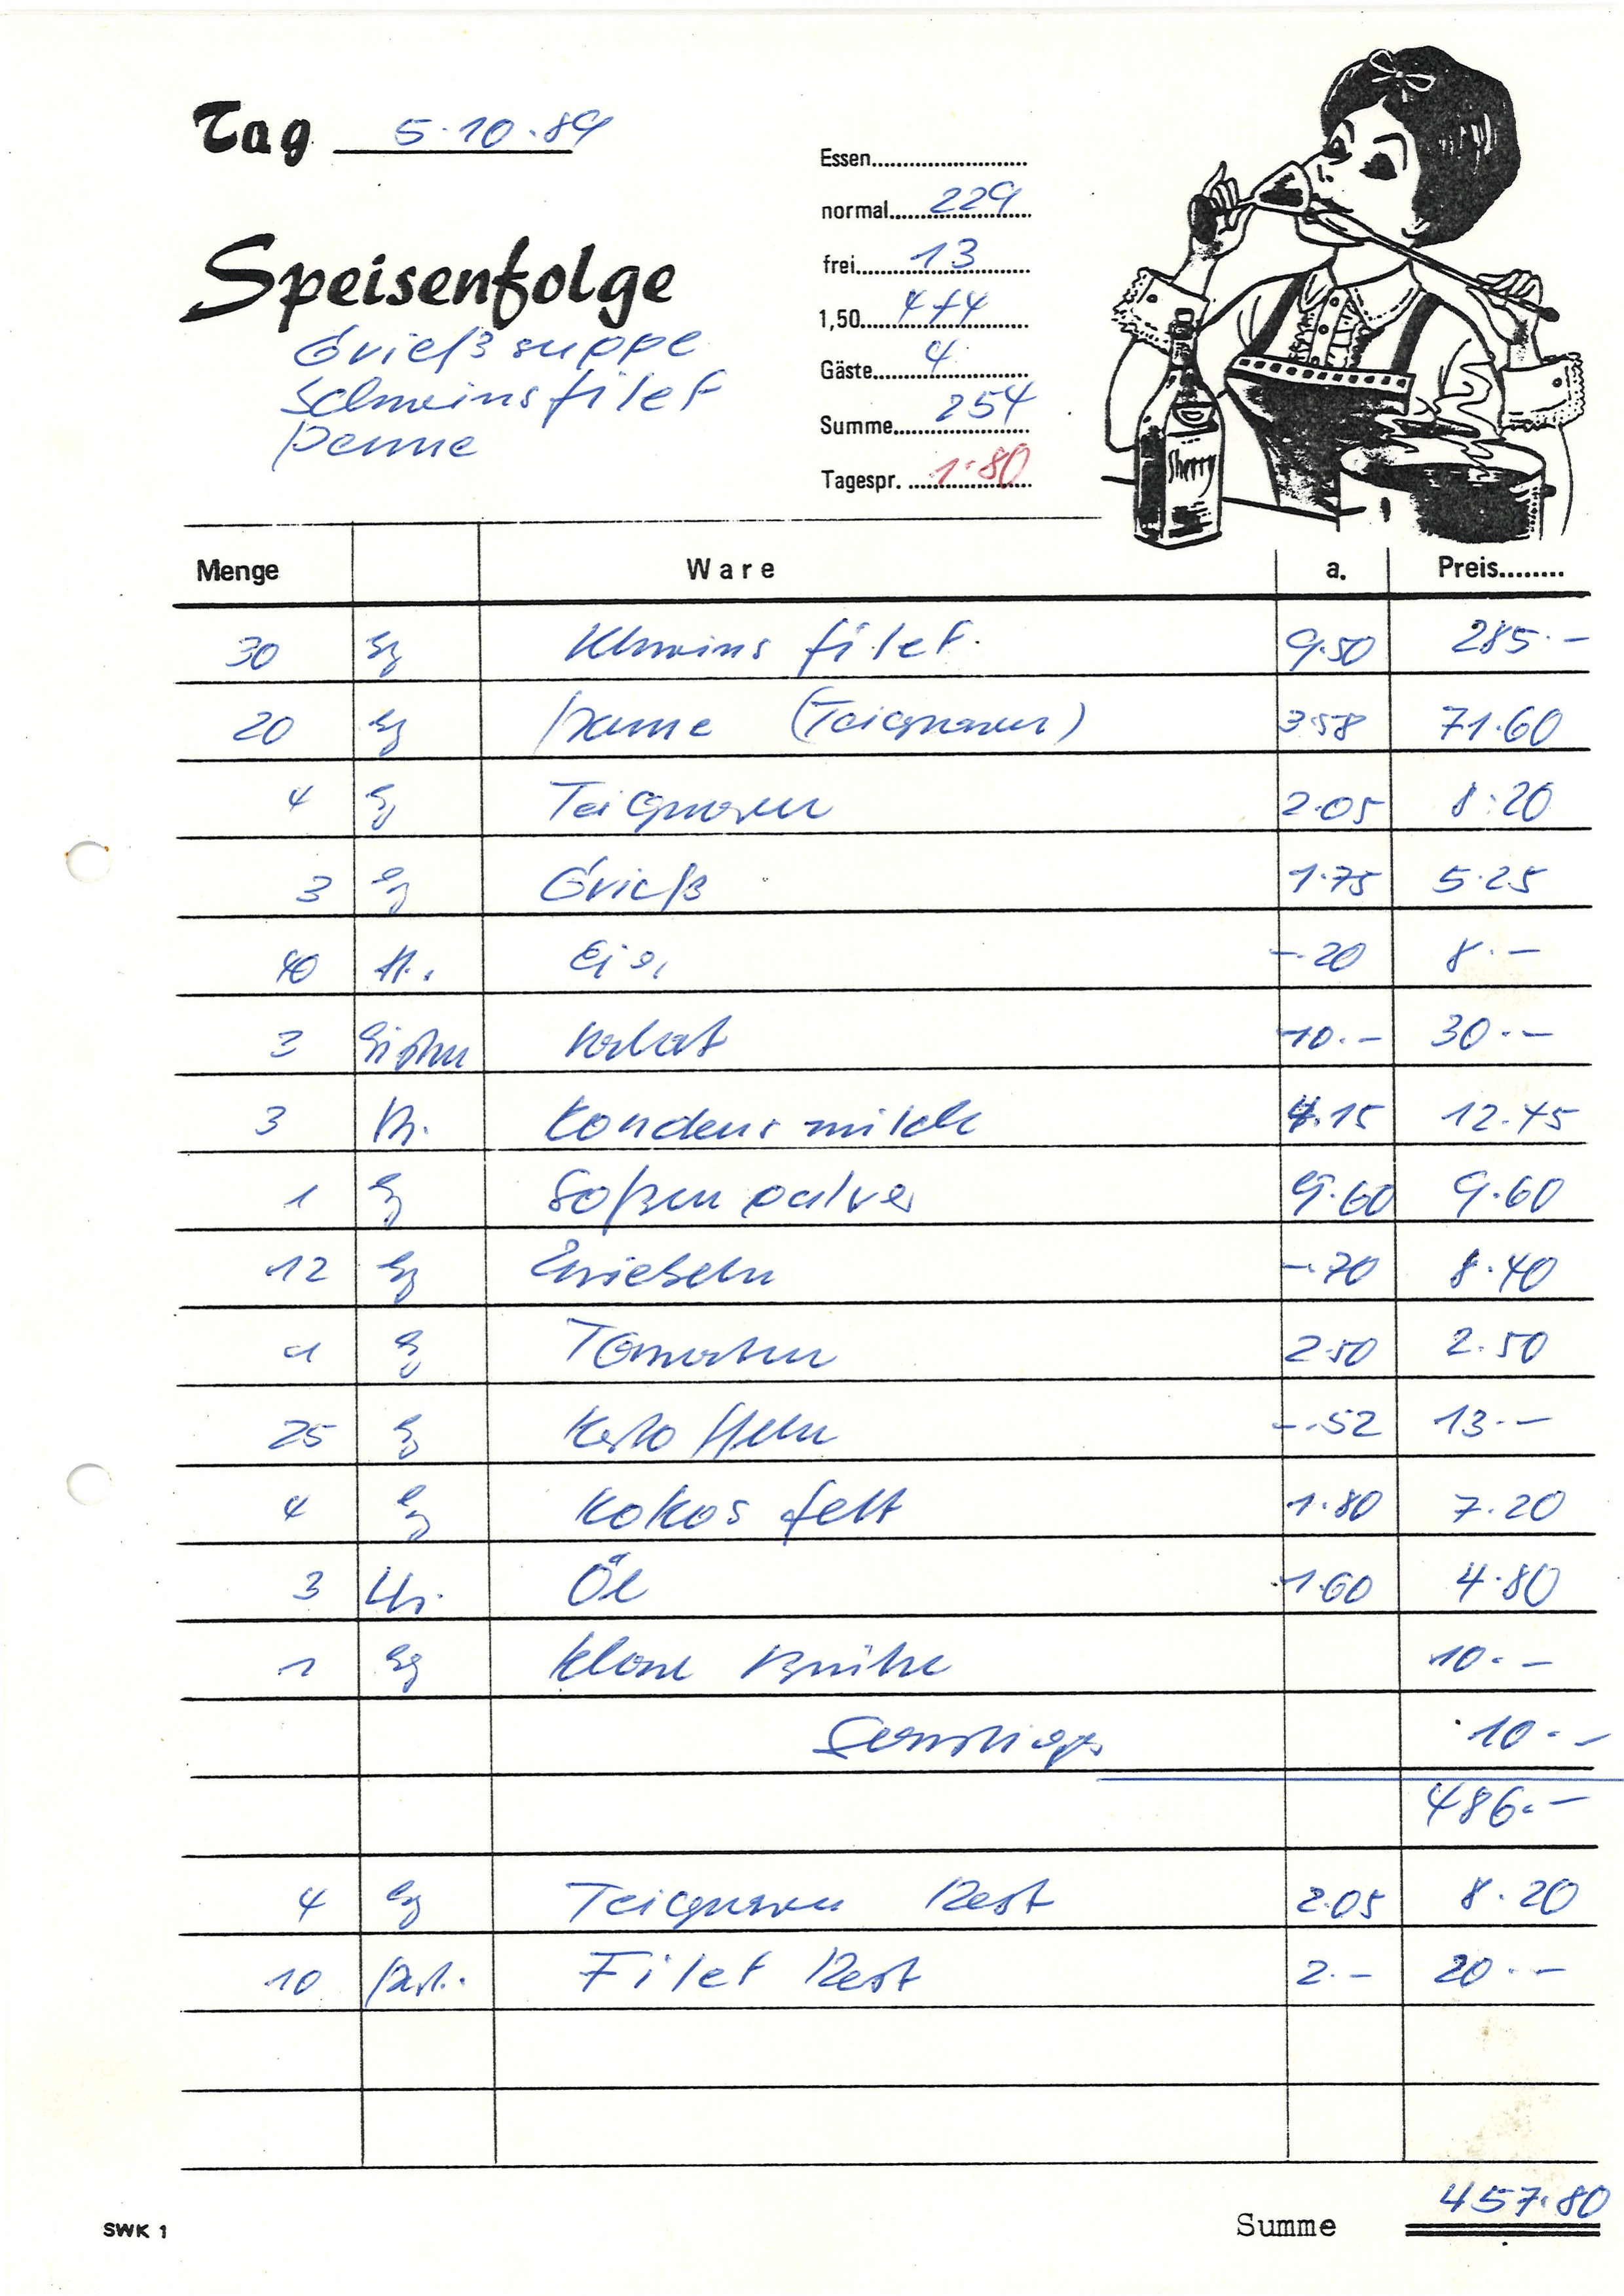 Tag 5.10.89
Essen
normal 229
frei 13
1,50 4+4
Gäste 4
Summe 254
Tagespr. 1.80
Speisenfolge
Grießsuppe
Schweinsfilet
Penne
Sherry
Menge Ware a. Preis
30 kg Schweins filet. 9.50 285.-
20 kg Penne (Teigwaren) 3.58 71.60
4 kg Teigwaren 2.05 8.20
3 kg Grieß 1.75 5.25
40 St. Eier -.20 8.-
3 Kisten Salat 10.- 30.-
3 Kondensmilch 4.15 12.45
1 kg Soßenpulver 9.60 9.60
12 kg Zwiebeln -.70 8.40
1 kg Tomaten 2.50 2.50
25 kg Kartoffeln -.52 13.-
4 kg Kokosfett 1.80 7.20
3 Ltr. Öl 1.60 4.80
1 kg klare Brühe 10.-
Sonstiges 10.-
486.-
4 kg Teigwaren Rest 2.05 8.20
10 Port. Filet Rest 2.- 20.-
SWK 1
Summe 457.80